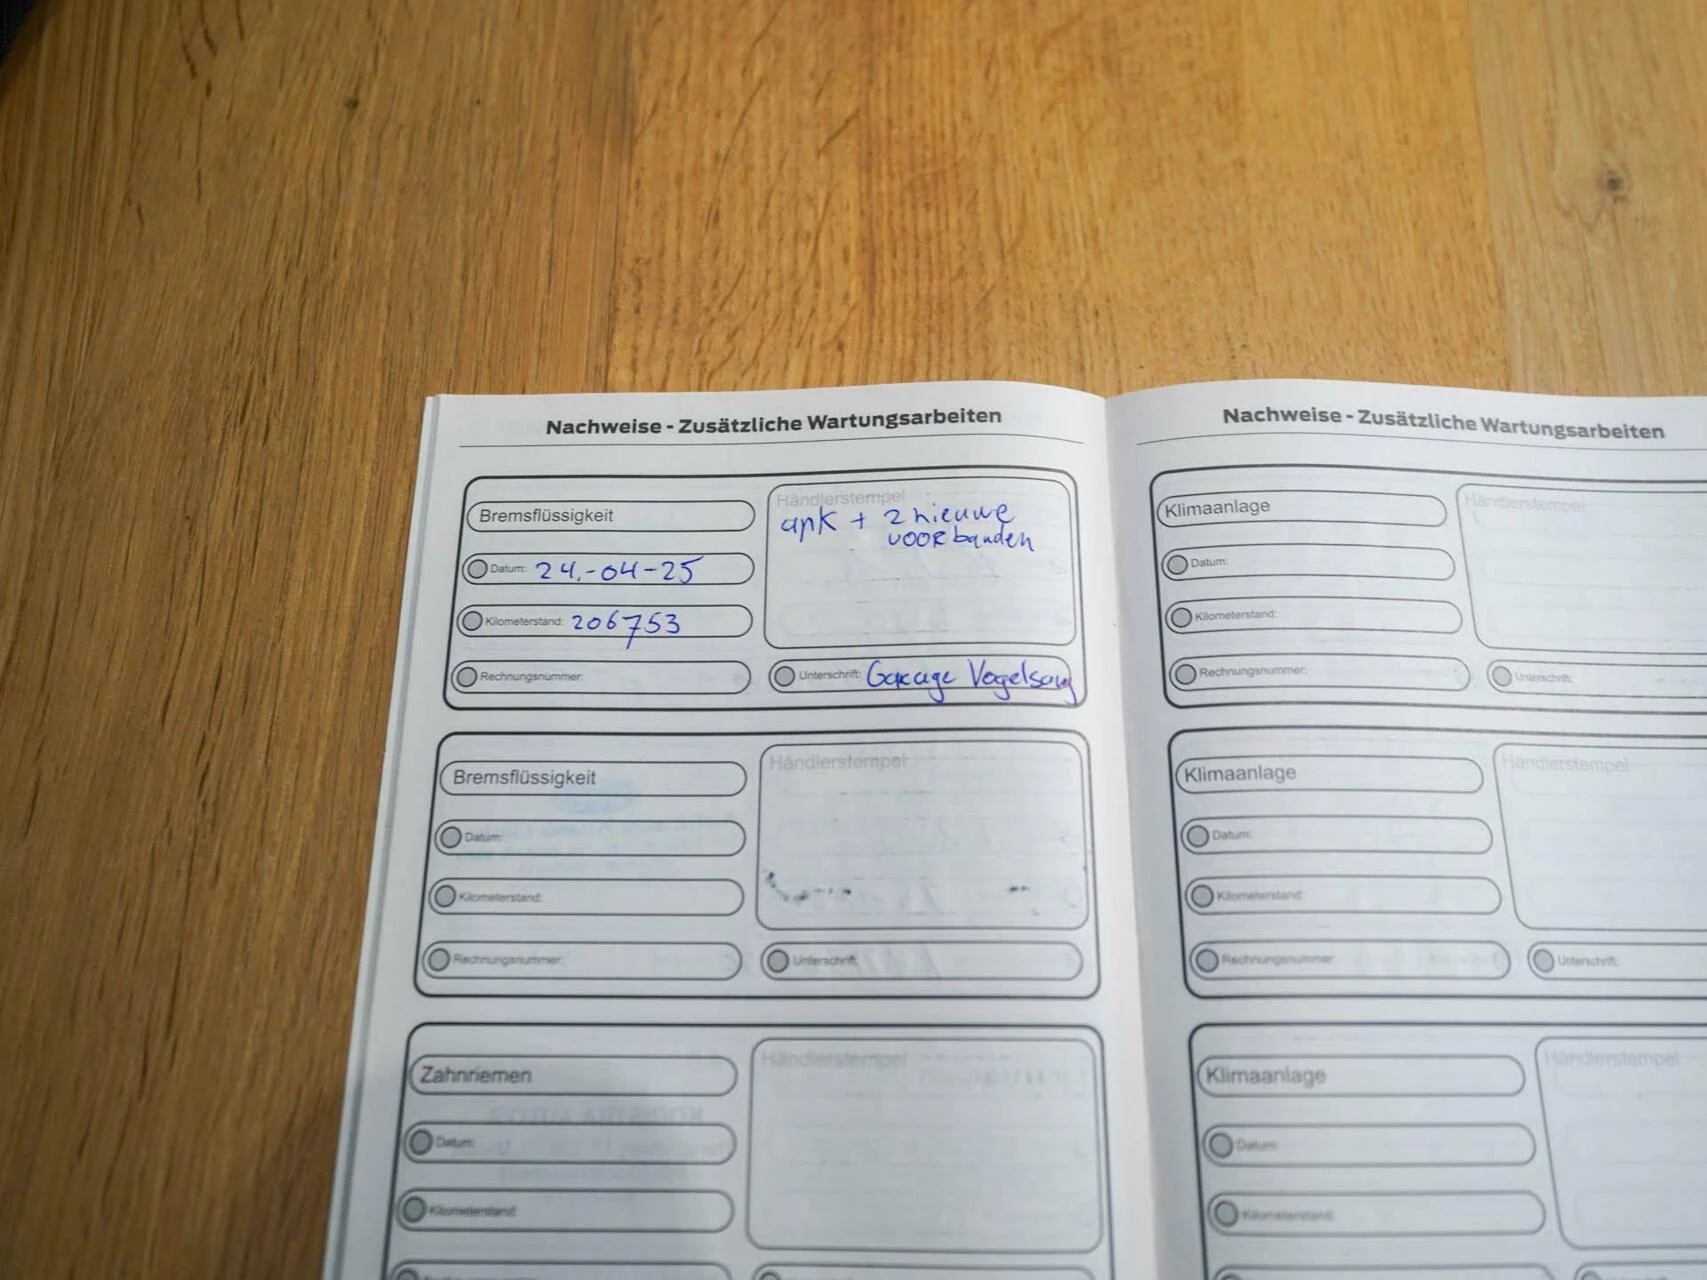 Nachweise - Zusätzliche Wartungsarbeiten
Bremsflüssigkeit
Händlerstempel
apk + 2 nieuwe
voorbanden
Datum: 24.-04-25
Kilometerstand: 206753
Rechnungsnummer:
Unterschrift: Garage Vogelsang
Bremsflüssigkeit
Händlerstempel
Datum:
Kilometerstand:
Rechnungsnummer:
Unterschrift:
Zahnriemen
Händlerstempel
Datum:
Kilometerstand:
Nachweise - Zusätzliche Wartungsarbeiten
Klimaanlage
Händlerstempel
Datum:
Kilometerstand:
Rechnungsnummer:
Unterschrift:
Klimaanlage
Händlerstempel
Datum:
Kilometerstand:
Rechnungsnummer:
Unterschrift:
Klimaanlage
Händlerstempel
Datum:
Kilometerstand: